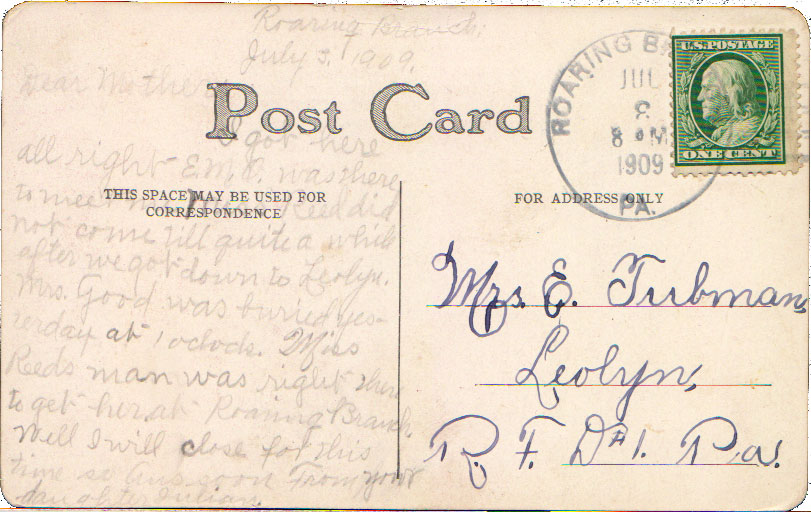 Roaring Branch,
July 3, 1909,
Dear Mother
I got here
all right E.M.C. was there
to meet me Miss Reed did
not come till quite a while
after we got down to Leolyn.
Mrs. Good was buried yes-
terday at 1 oclock. Miss
Reeds man was right there
to get her at Roaring Branch
Well I will close for this
time so ans soon From your
daughter Julian
Post Card
THIS SPACE MAY BE USED FOR
CORRESPONDENCE
FOR ADDRESS ONLY
ROARING B
JUL
8
8 AM
1909
PA.
U.S. POSTAGE
ONE CENT
Mrs. E. Tubman,
Leolyn,
R. F. D#1. Pa.